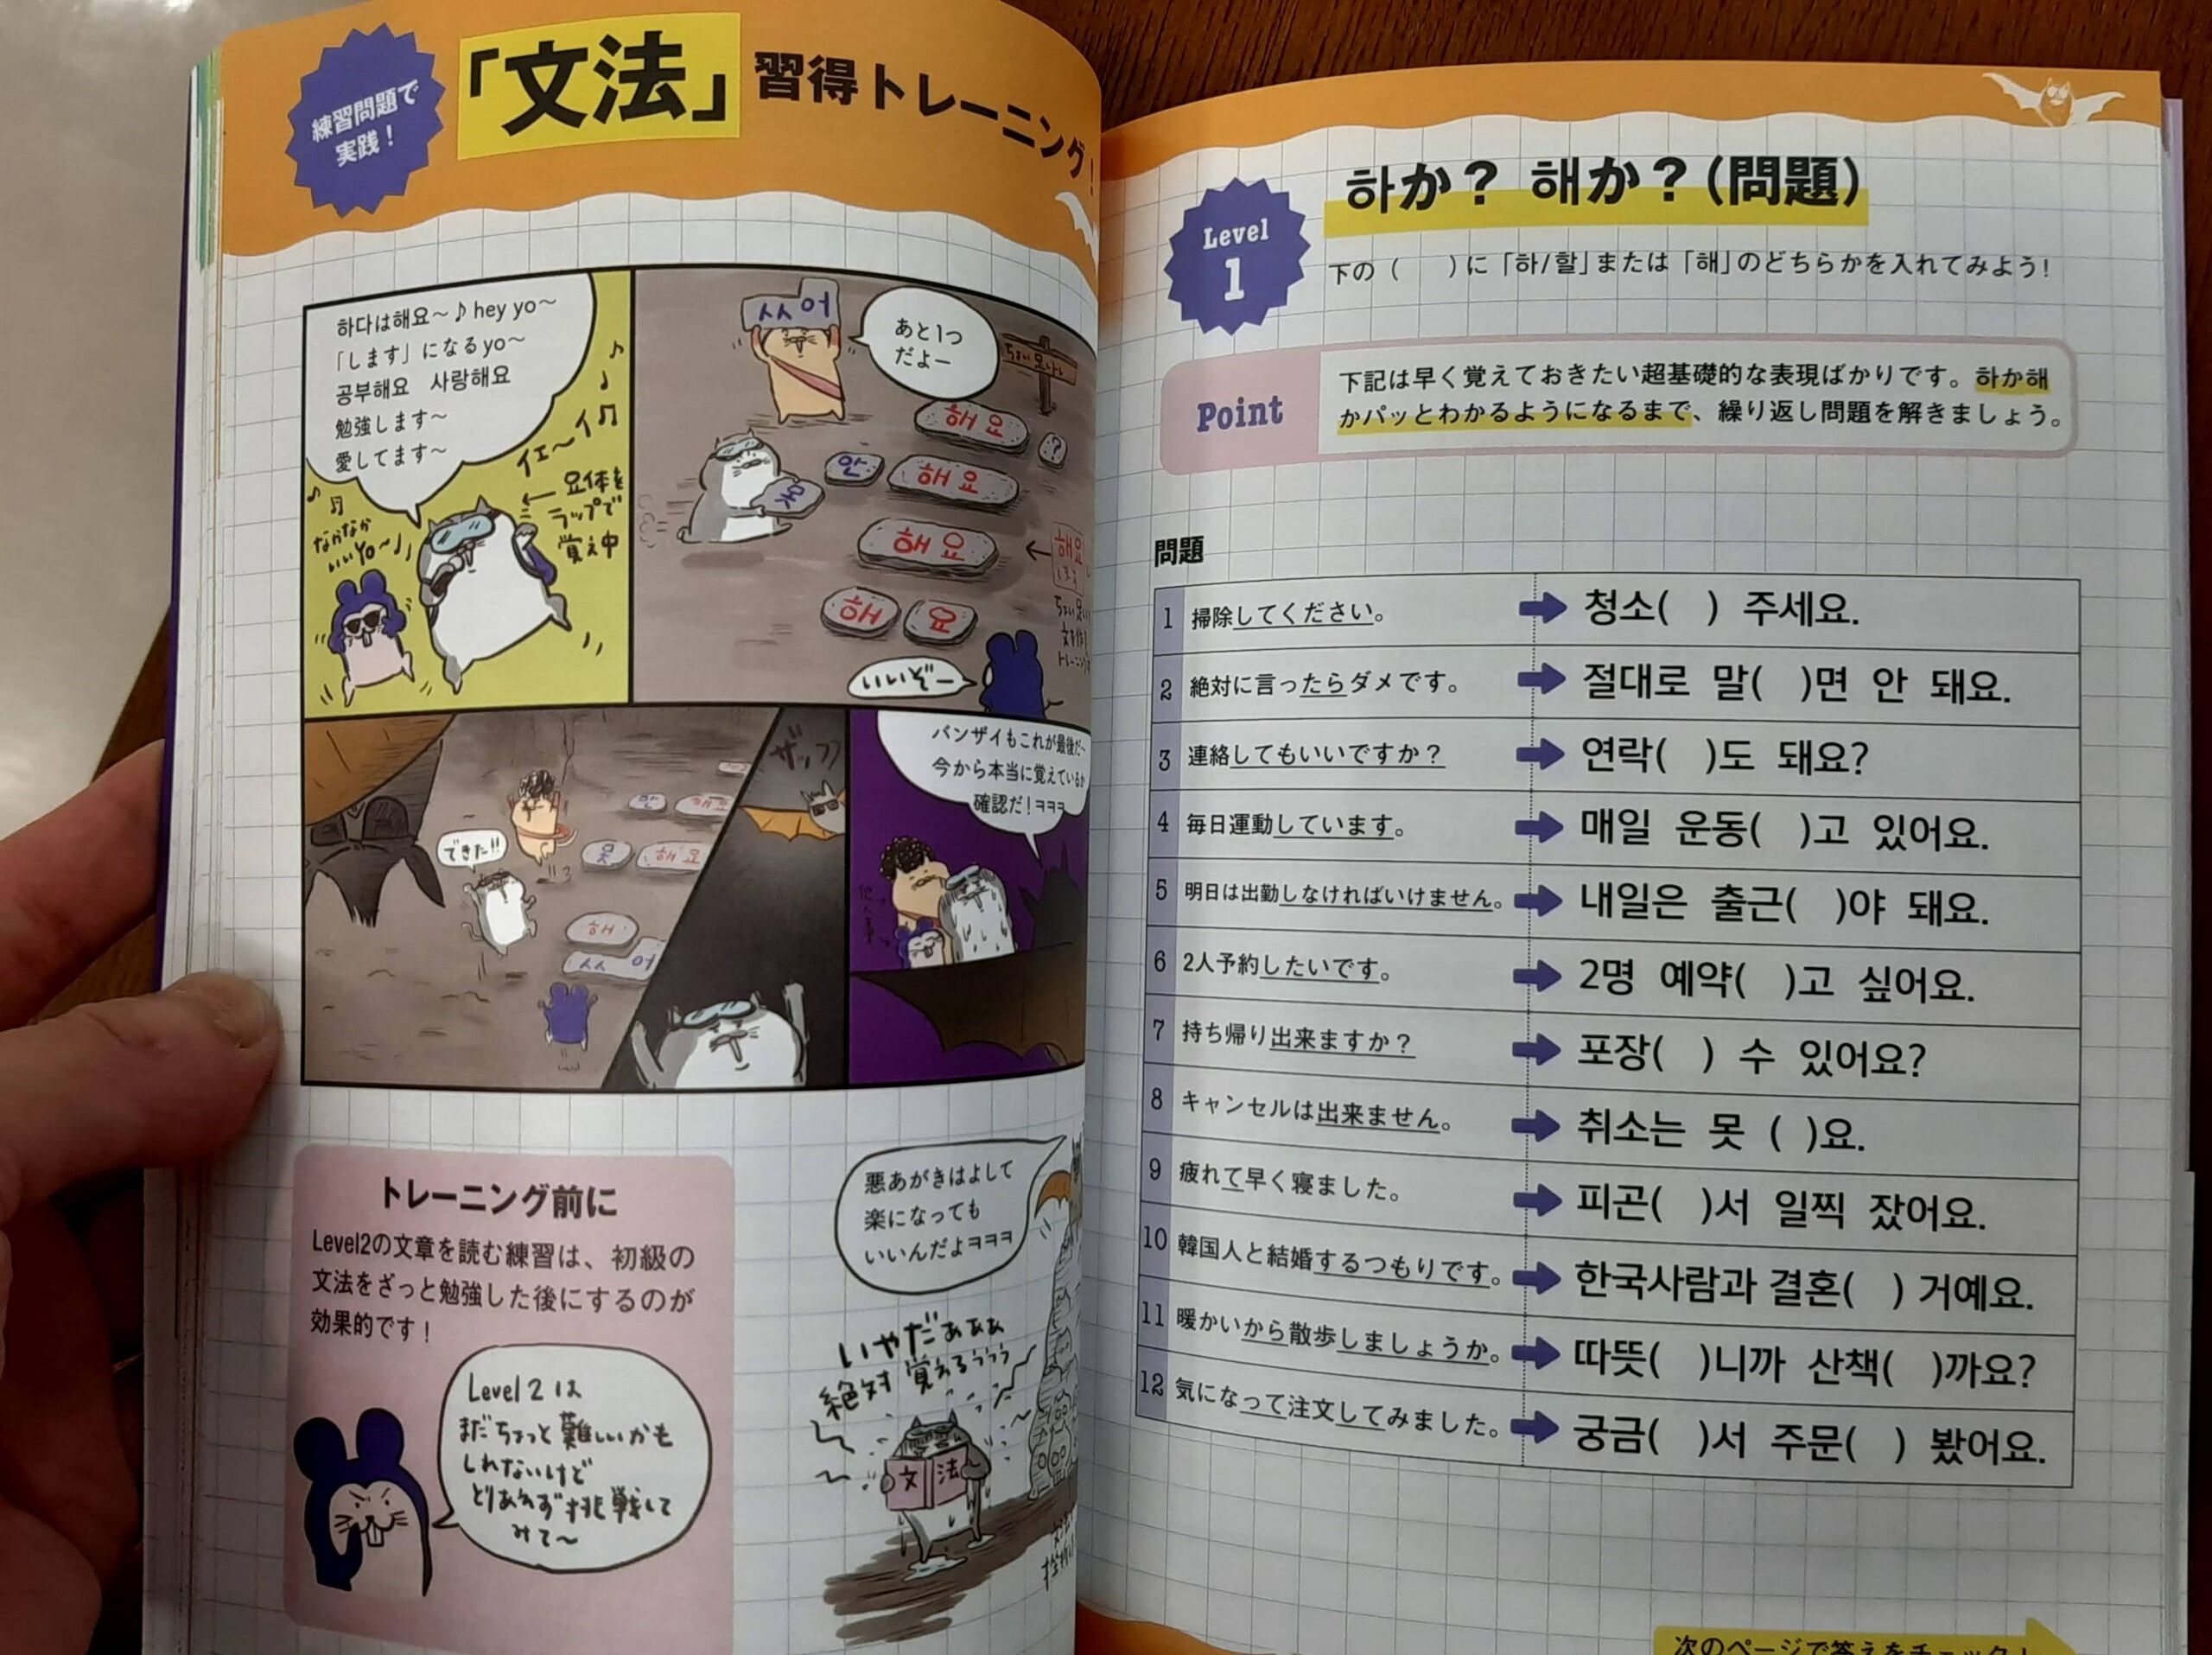 練習問題で
実践！
「文法」習得トレーニング！
하다は해요～♪hey yo～
「します」になるyo～
공부해요 사랑해요
勉強します～
愛してます～
イエ～イ
← 요体を
ラップで
覚え中
なかなか
いいYo～♪
ㅆ어
あと1つ
だよー
해요
?
안
해요
못
해요
←
해
요
いいぞー
できた!!
안
해요
못
해요
해
ㅆ어
バンザイもこれが最後だ…
今から本当に覚えているか
確認だ！ㅋㅋㅋ
トレーニング前に
Level2の文章を読む練習は、初級の
文法をざっと勉強した後にするのが
効果的です！
Level 2 は
まだちょっと難しいかも
しれないけど
とりあえず挑戦して
みて～
悪あがきはよして
楽になっても
いいんだよㅋㅋㅋ
いやだぁぁぁ
絶対覚えるぅぅぅ
文法
Level
1
하か？ 해か？（問題）
下の（　　）に「하/할」または「해」のどちらかを入れてみよう！
Point
下記は早く覚えておきたい超基礎的な表現ばかりです。하か해
かパッとわかるようになるまで、繰り返し問題を解きましょう。
問題
1 掃除してください。 ➡ 청소(　) 주세요.
2 絶対に言ったらダメです。 ➡ 절대로 말(　)면 안 돼요.
3 連絡してもいいですか？ ➡ 연락(　)도 돼요?
4 毎日運動しています。 ➡ 매일 운동(　)고 있어요.
5 明日は出勤しなければいけません。 ➡ 내일은 출근(　)야 돼요.
6 2人予約したいです。 ➡ 2명 예약(　)고 싶어요.
7 持ち帰り出来ますか？ ➡ 포장(　) 수 있어요?
8 キャンセルは出来ません。 ➡ 취소는 못 (　)요.
9 疲れて早く寝ました。 ➡ 피곤(　)서 일찍 잤어요.
10 韓国人と結婚するつもりです。 ➡ 한국사람과 결혼(　) 거예요.
11 暖かいから散歩しましょうか。 ➡ 따뜻(　)니까 산책(　)까요?
12 気になって注文してみました。 ➡ 궁금(　)서 주문(　) 봤어요.
次のページで答えをチェック！